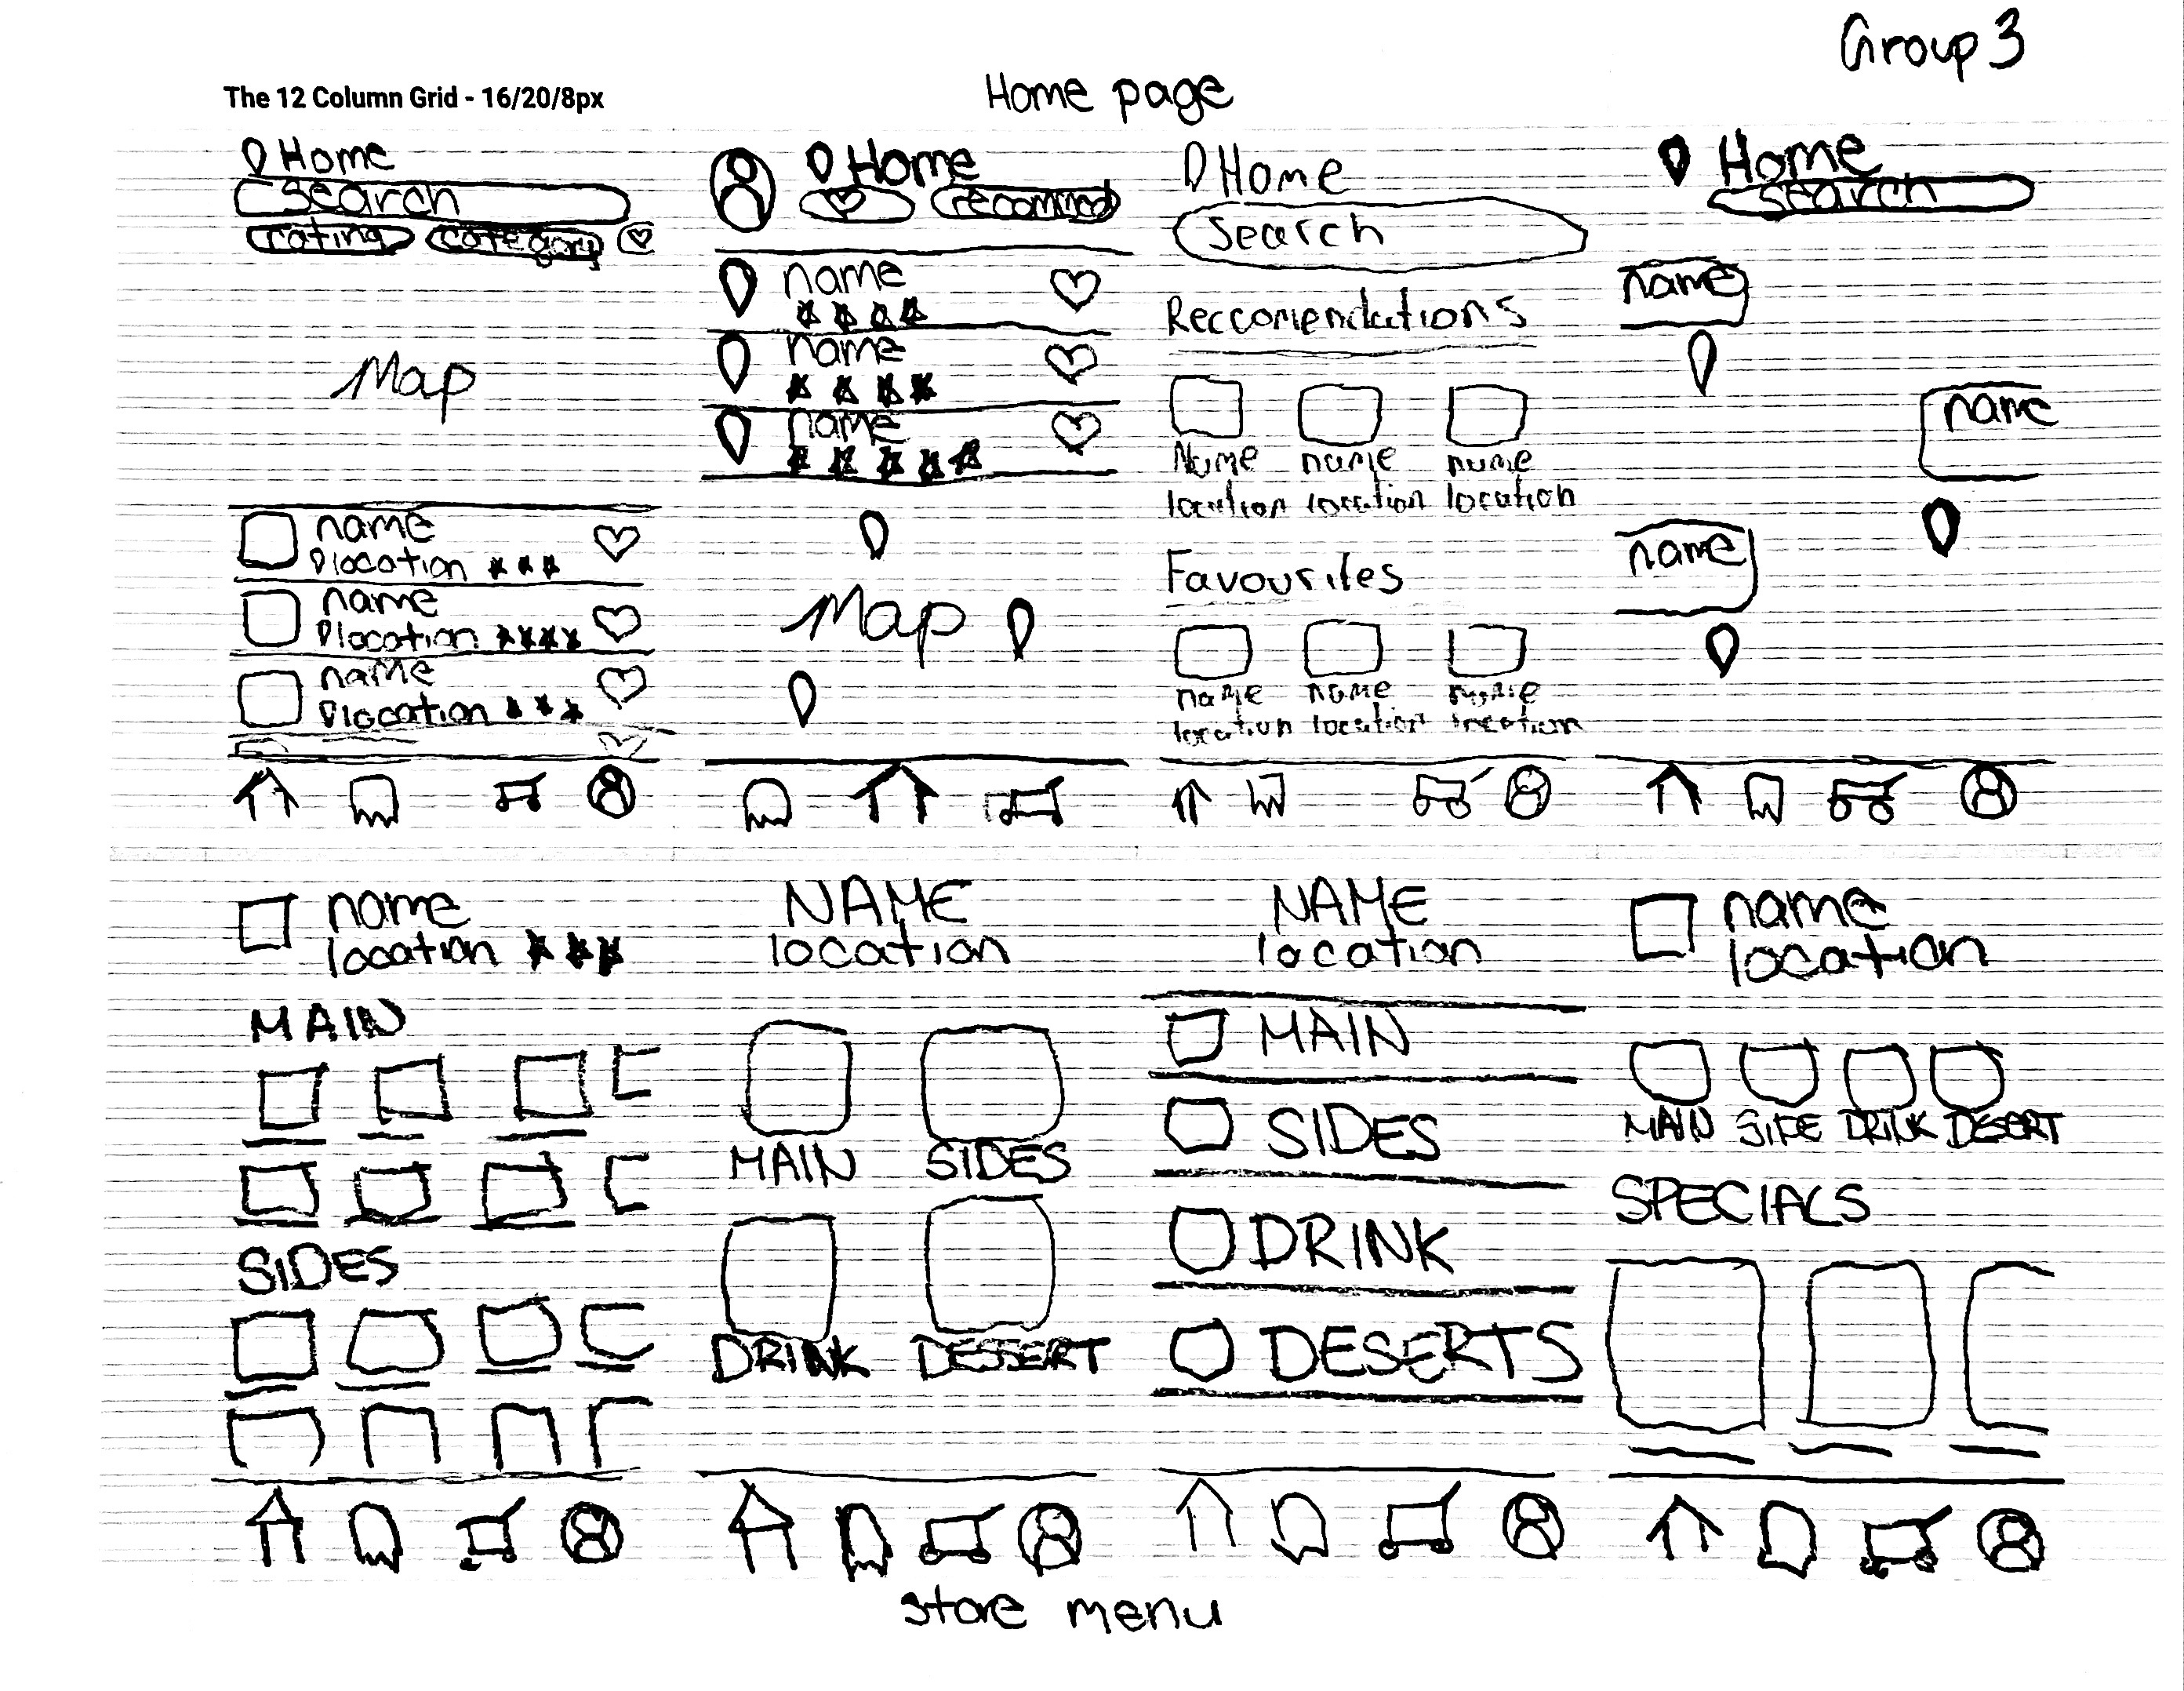 Group 3
The 12 Column Grid - 16/20/8px
Home page
Home
Search
rating category
Map
name
location
name
location
name
location
Home
recommend
name
name
name
Map
Home
Search
Reccomendations
Name name name
location location location
Favourites
name name name
location location location
Home
Search
name
name
name
name
location
MAIN
SIDES
NAME
location
MAIN SIDES
DRINK DESSERT
NAME
location
MAIN
SIDES
DRINK
DESERTS
name
location
MAIN SIDE DRINK DESERT
SPECIALS
store menu